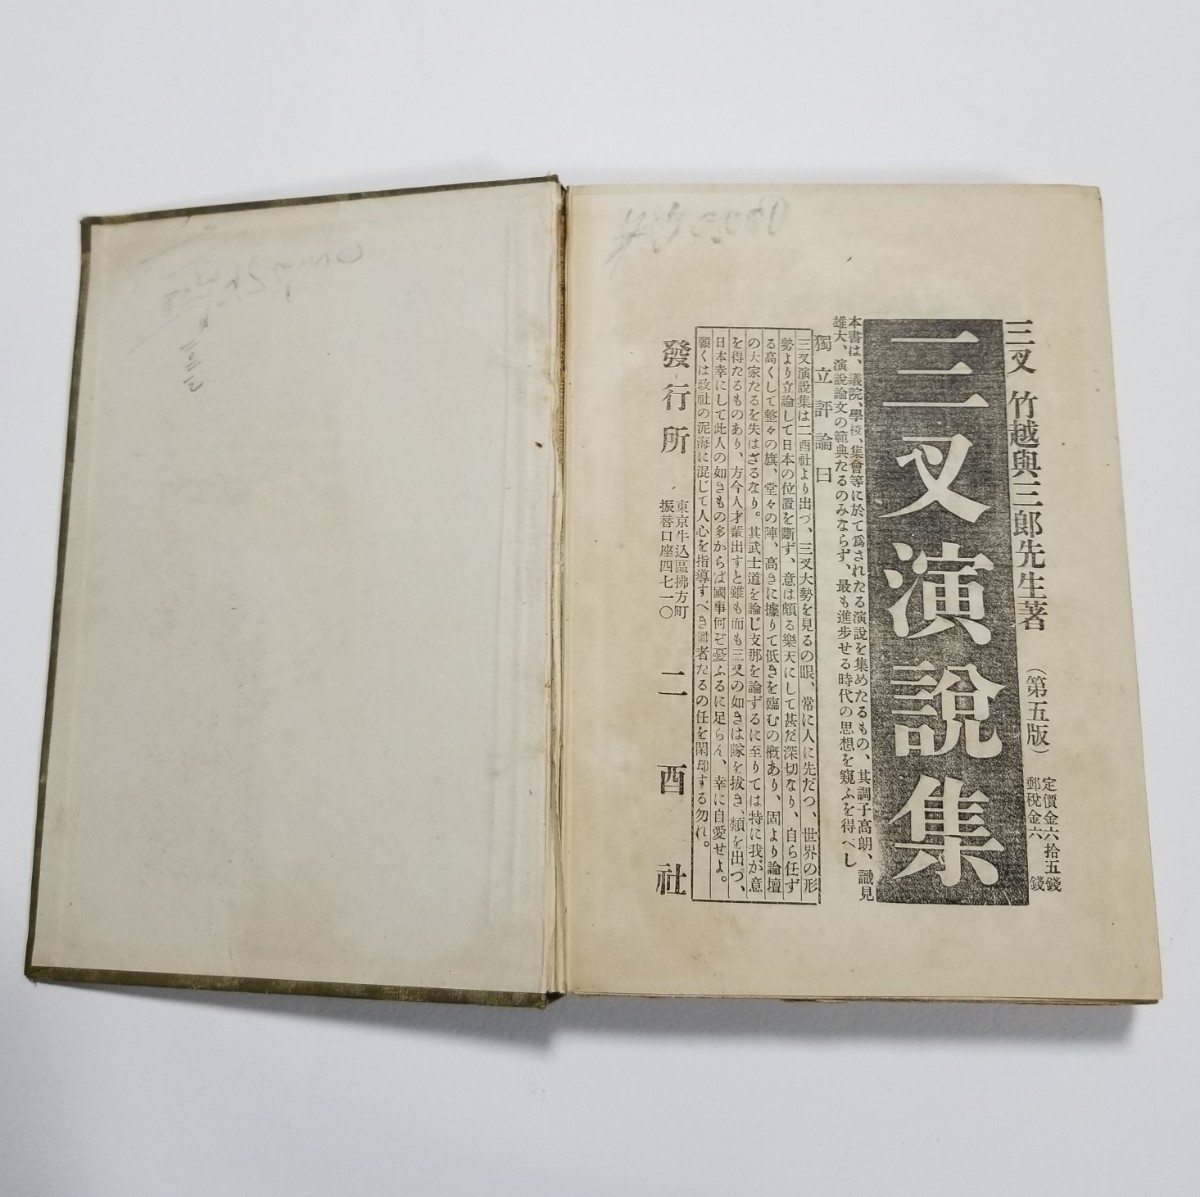 三叉 竹越與三郎先生著 (第五版) 定價金六拾五錢
郵税金六錢
三叉演説集
本書は、議院、學校、集會等に於て爲されたる演説を集めたるもの、其調子高朗、識見
雄大、演説論文の範典たるのみならず、最も進步せる時代の思想を窺ふを得べし
獨立評論曰
三叉演說集は二酉社より出つ、三叉大勢を見るの眼、常に人に先だつ、世界の形
勢より立論して日本の位置を斷ず、意は頗る樂天にして甚だ深切なり、自ら任ず
る高くして整々の旗、堂々の陣、高きに據りて低きを臨むの槪あり、固より論壇
の大家たるを失はざるなり。其武士道を論じ支那を論ずるに至りては特に我が意
を得たるものあり、方今人才輩出すと雖も而も三叉の如きは隊を拔き、類を出づ、
日本幸にして此人の如きもの多からば國事何ぞ憂ふるに足らん、幸に自愛せよ。
願くは政社の泥海に混じて人心を指導すべき識者たるの任を閑却する勿れ。
發行所 東京牛込區拂方町
振替口座四七一〇 二酉社